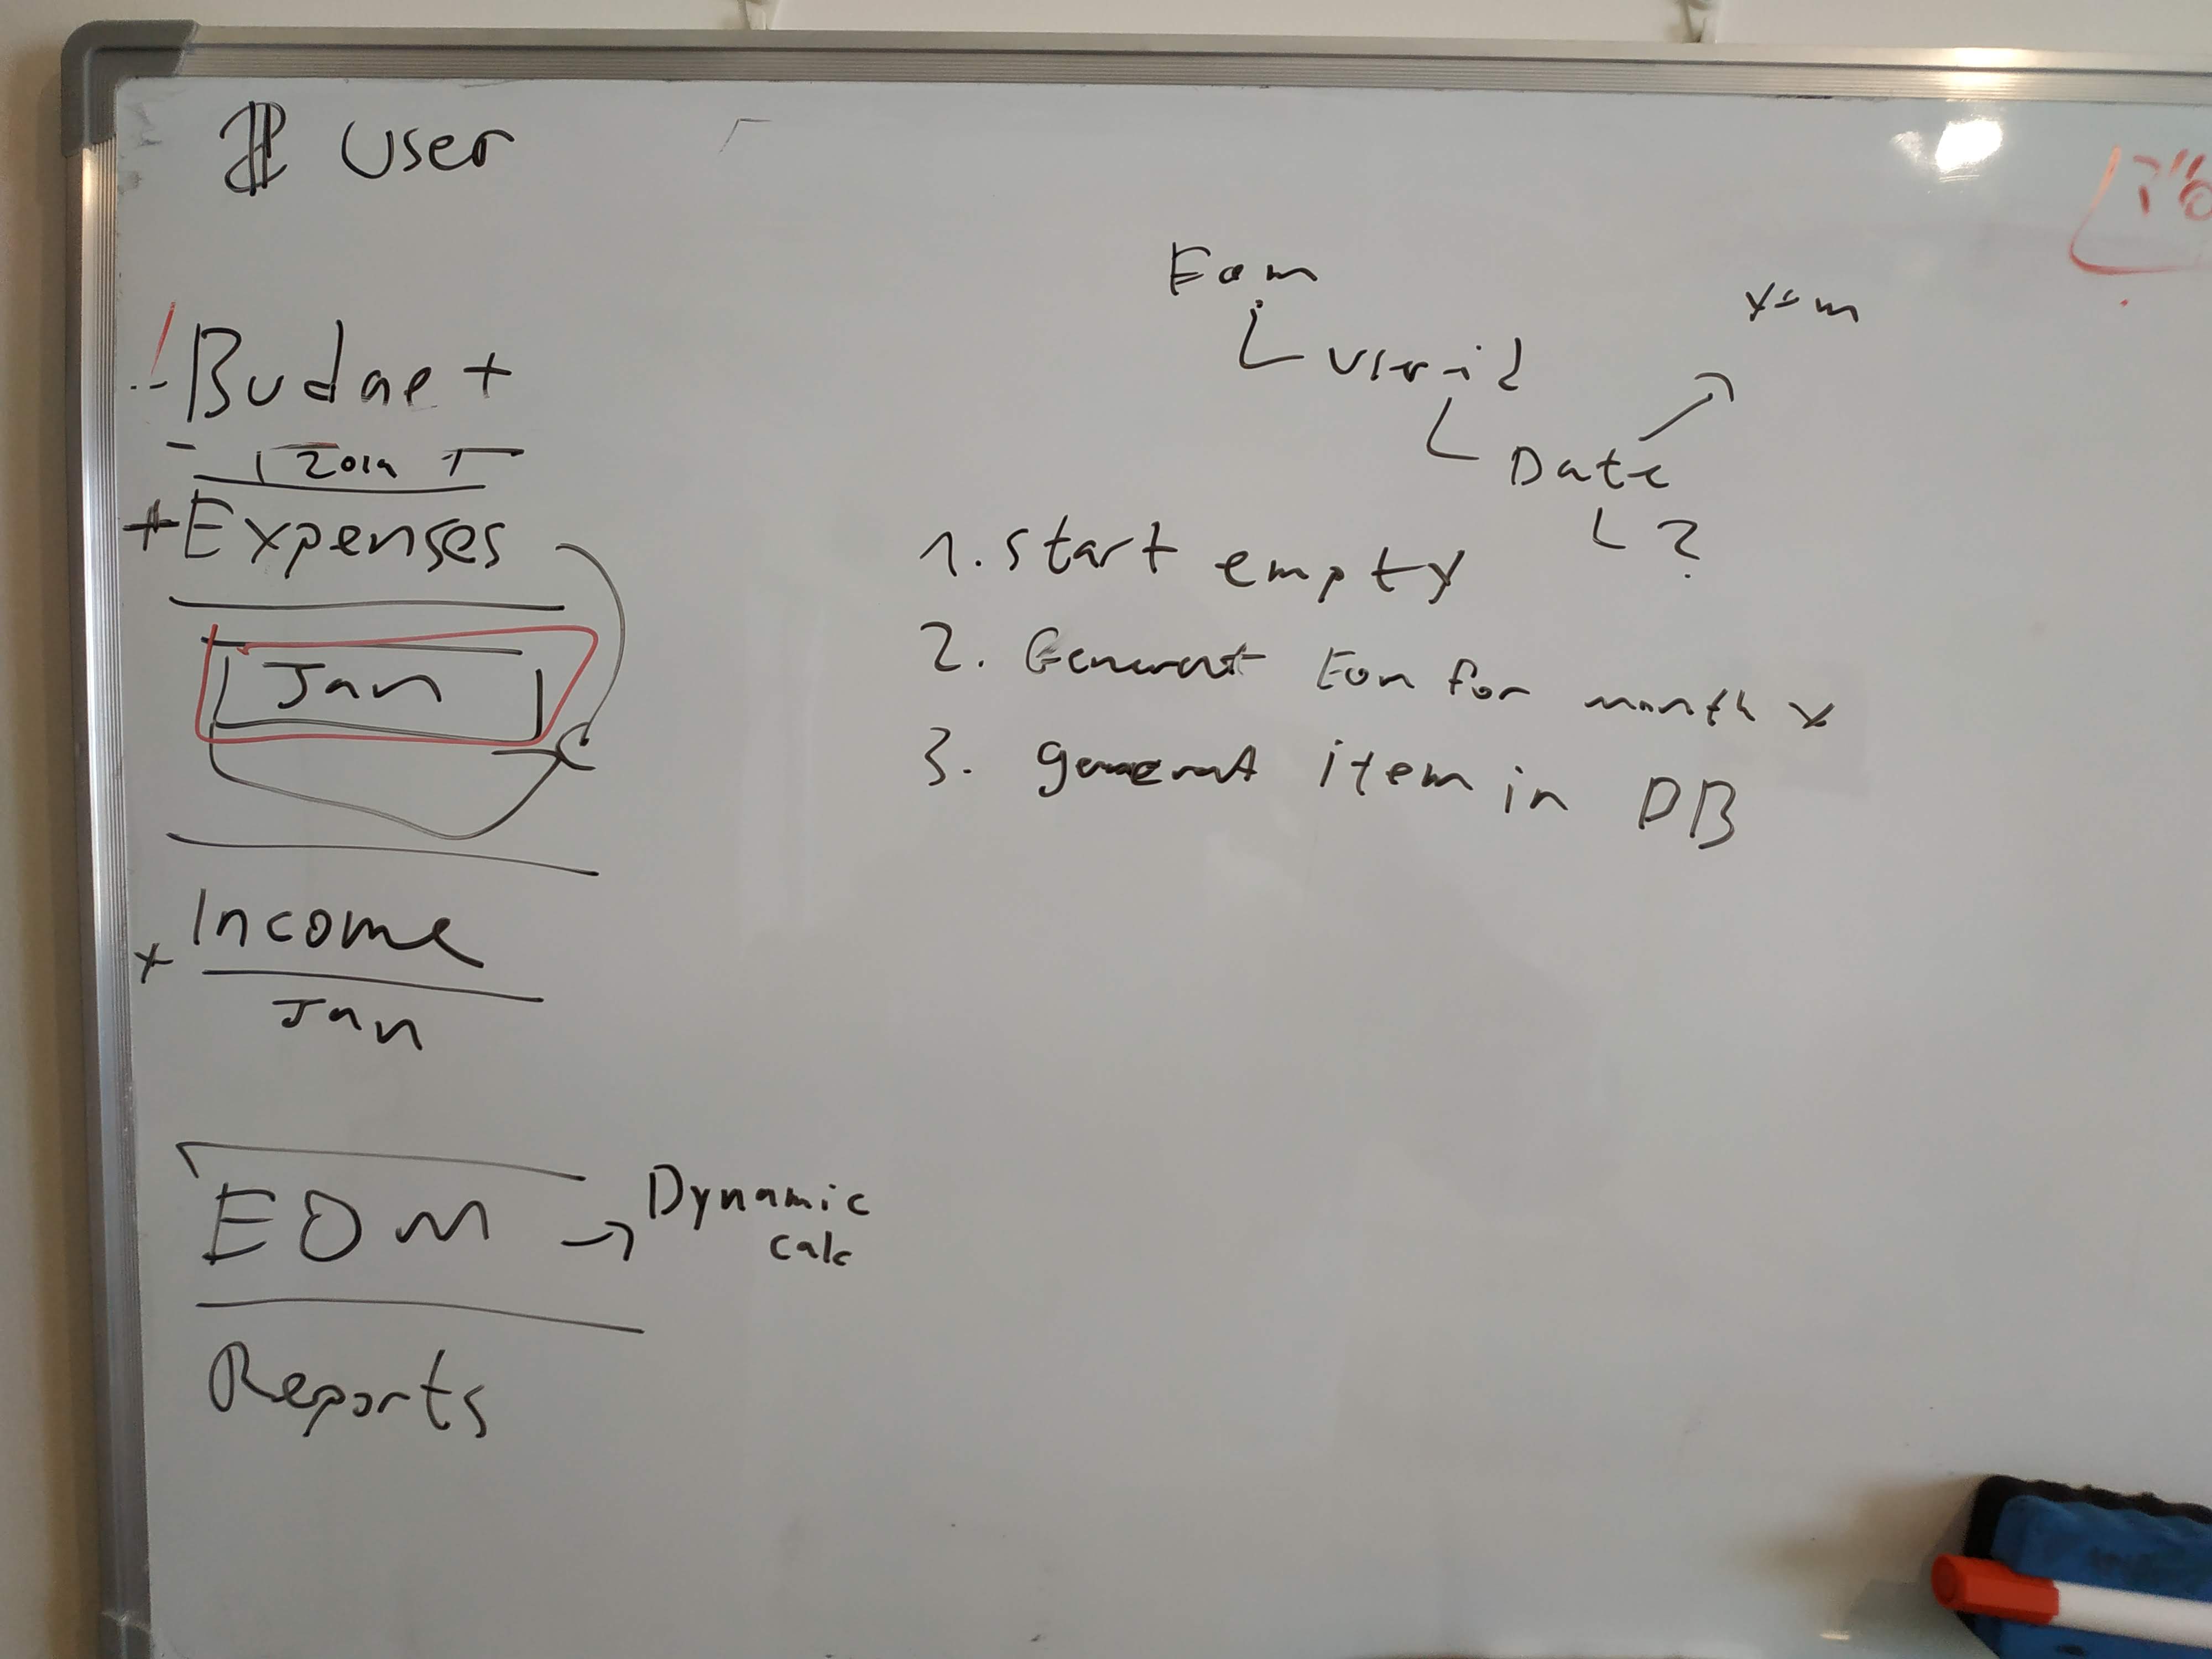 User
Budget
2019
+ Expenses
Jan
+ Income
Jan
EOM → Dynamic
calc
Reports
Eom
User id
Date
?
1. start empty
2. Generat Eom for month x
3. generat item in DB